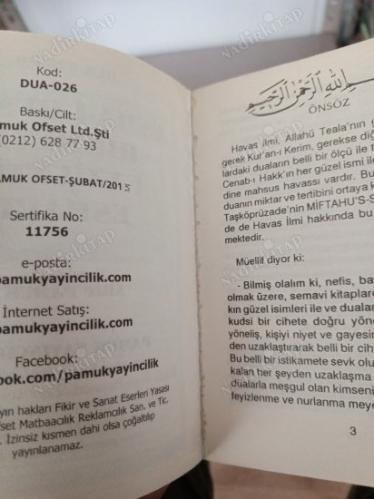 Kod:
DUA-026
Baskı/Cilt:
muk Ofset Ltd.Şti
(0212) 628 77 93
AMUK OFSET-ŞUBAT/2015
Sertifika No:
11756
e-posta:
pamukyayincilik.com
İnternet Satış:
pamukyayincilik.com
Facebook:
book.com/pamukyayincilik
yın hakları Fikir ve Sanat Eserleri Yasası
fset Matbaacılık Reklamcılık San. ve Tic.
. İzinsiz kısmen dahi olsa çoğaltılıp
yayınlanamaz.
بسم الله الرحمن الرحيم
ÖNSÖZ
Havas ilmi, Allahü Teala'nın g
gerek Kur'an-ı Kerim, gerekse diğ
lardaki duaların belli bir ölçü ile t
Cenab-ı Hakk'ın her güzel ismi ile
dine mahsus havassı vardır. Bu
duanın miktar ve tertibini ortaya k
Taşköprüzade'nin MİFTAHU'S-S
de de Havas İlmi hakkında bu
mektedir.
Müellif diyor ki:
- Bilmiş olalım ki, nefis, ba
olmak üzere, semavi kitaplarc
kın güzel isimleri ile ve dualar
kudsi bir cihete doğru yöne
yöneliş, kişiyi niyet ve gayesin
den uzaklaştırarak belli bir cih
Bu belli bir istikamete sevk olu
kalan her şeyden uzaklaşma
dualarla meşgul olan kimseni
feyizlenme ve nurlanma meye
3
nadirkitap